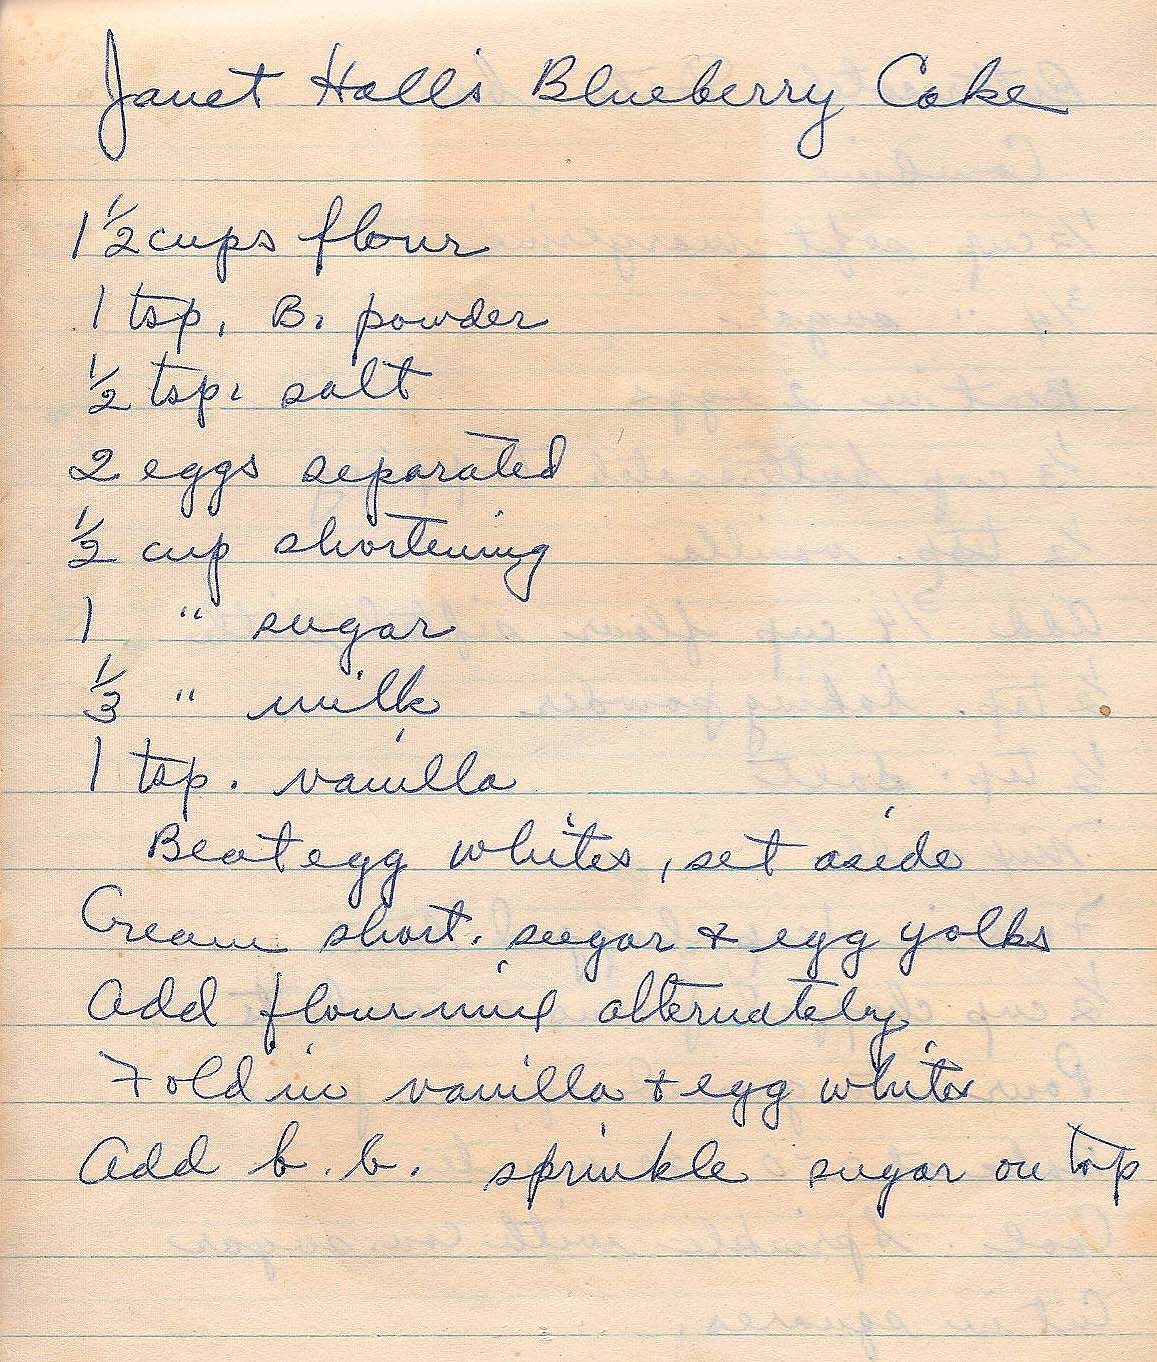 Janet Hall's Blueberry Cake
1 1/2 cups flour
1 tsp. B. powder
1/2 tsp. salt
2 eggs separated
1/2 cup shortening
1 " sugar
1/3 " milk
1 tsp. vanilla
Beat egg whites, set aside
Cream short. sugar & egg yolks
Add flour mix alternately
Fold in vanilla & egg whites
Add b.b. sprinkle sugar on top